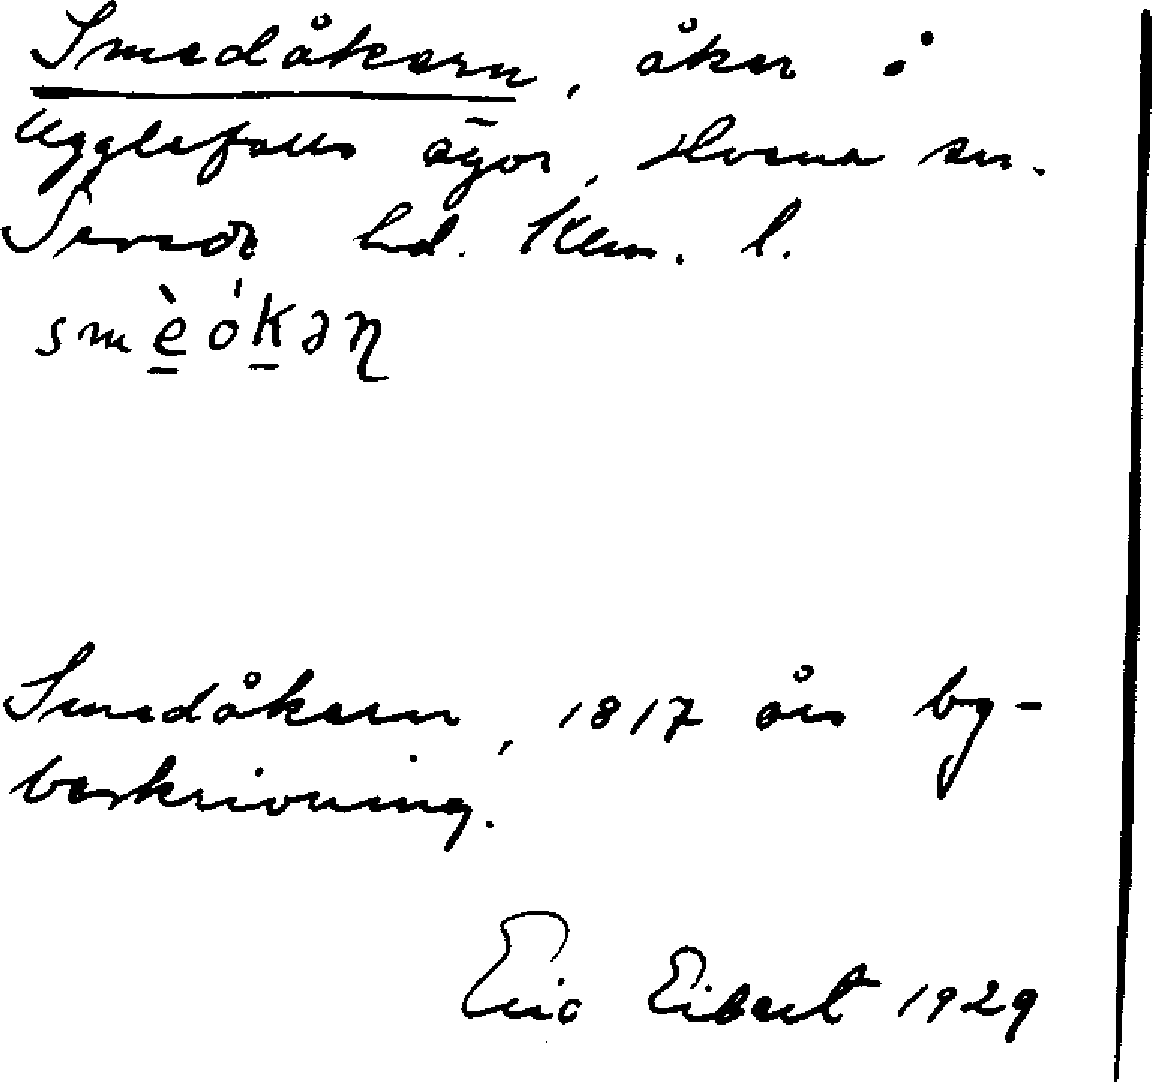 Smedåkern, åker i
Ugglefalls ägor, Hvena sn.
Sevede hd. Klm. l.
smèókəŋ
Smedåkern, 1817 års by-
beskrivning.
Eric Eibert 1929